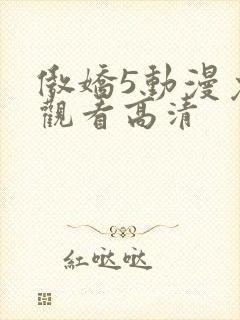 傲嬌5動漫
觀看高清
紅哒哒